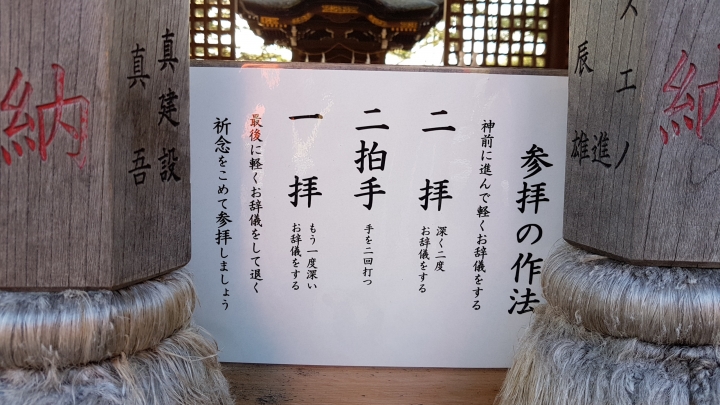 参拝の作法
神前に進んで軽くお辞儀をする
二拝
深く二度
お辞儀をする
二拍手
手を二回打つ
一拝
もう一度深い
お辞儀をする
最後に軽くお辞儀をして退く
祈念をこめて参拝しましょう
納
スエノ
辰進
雄
真建設
真吾
納